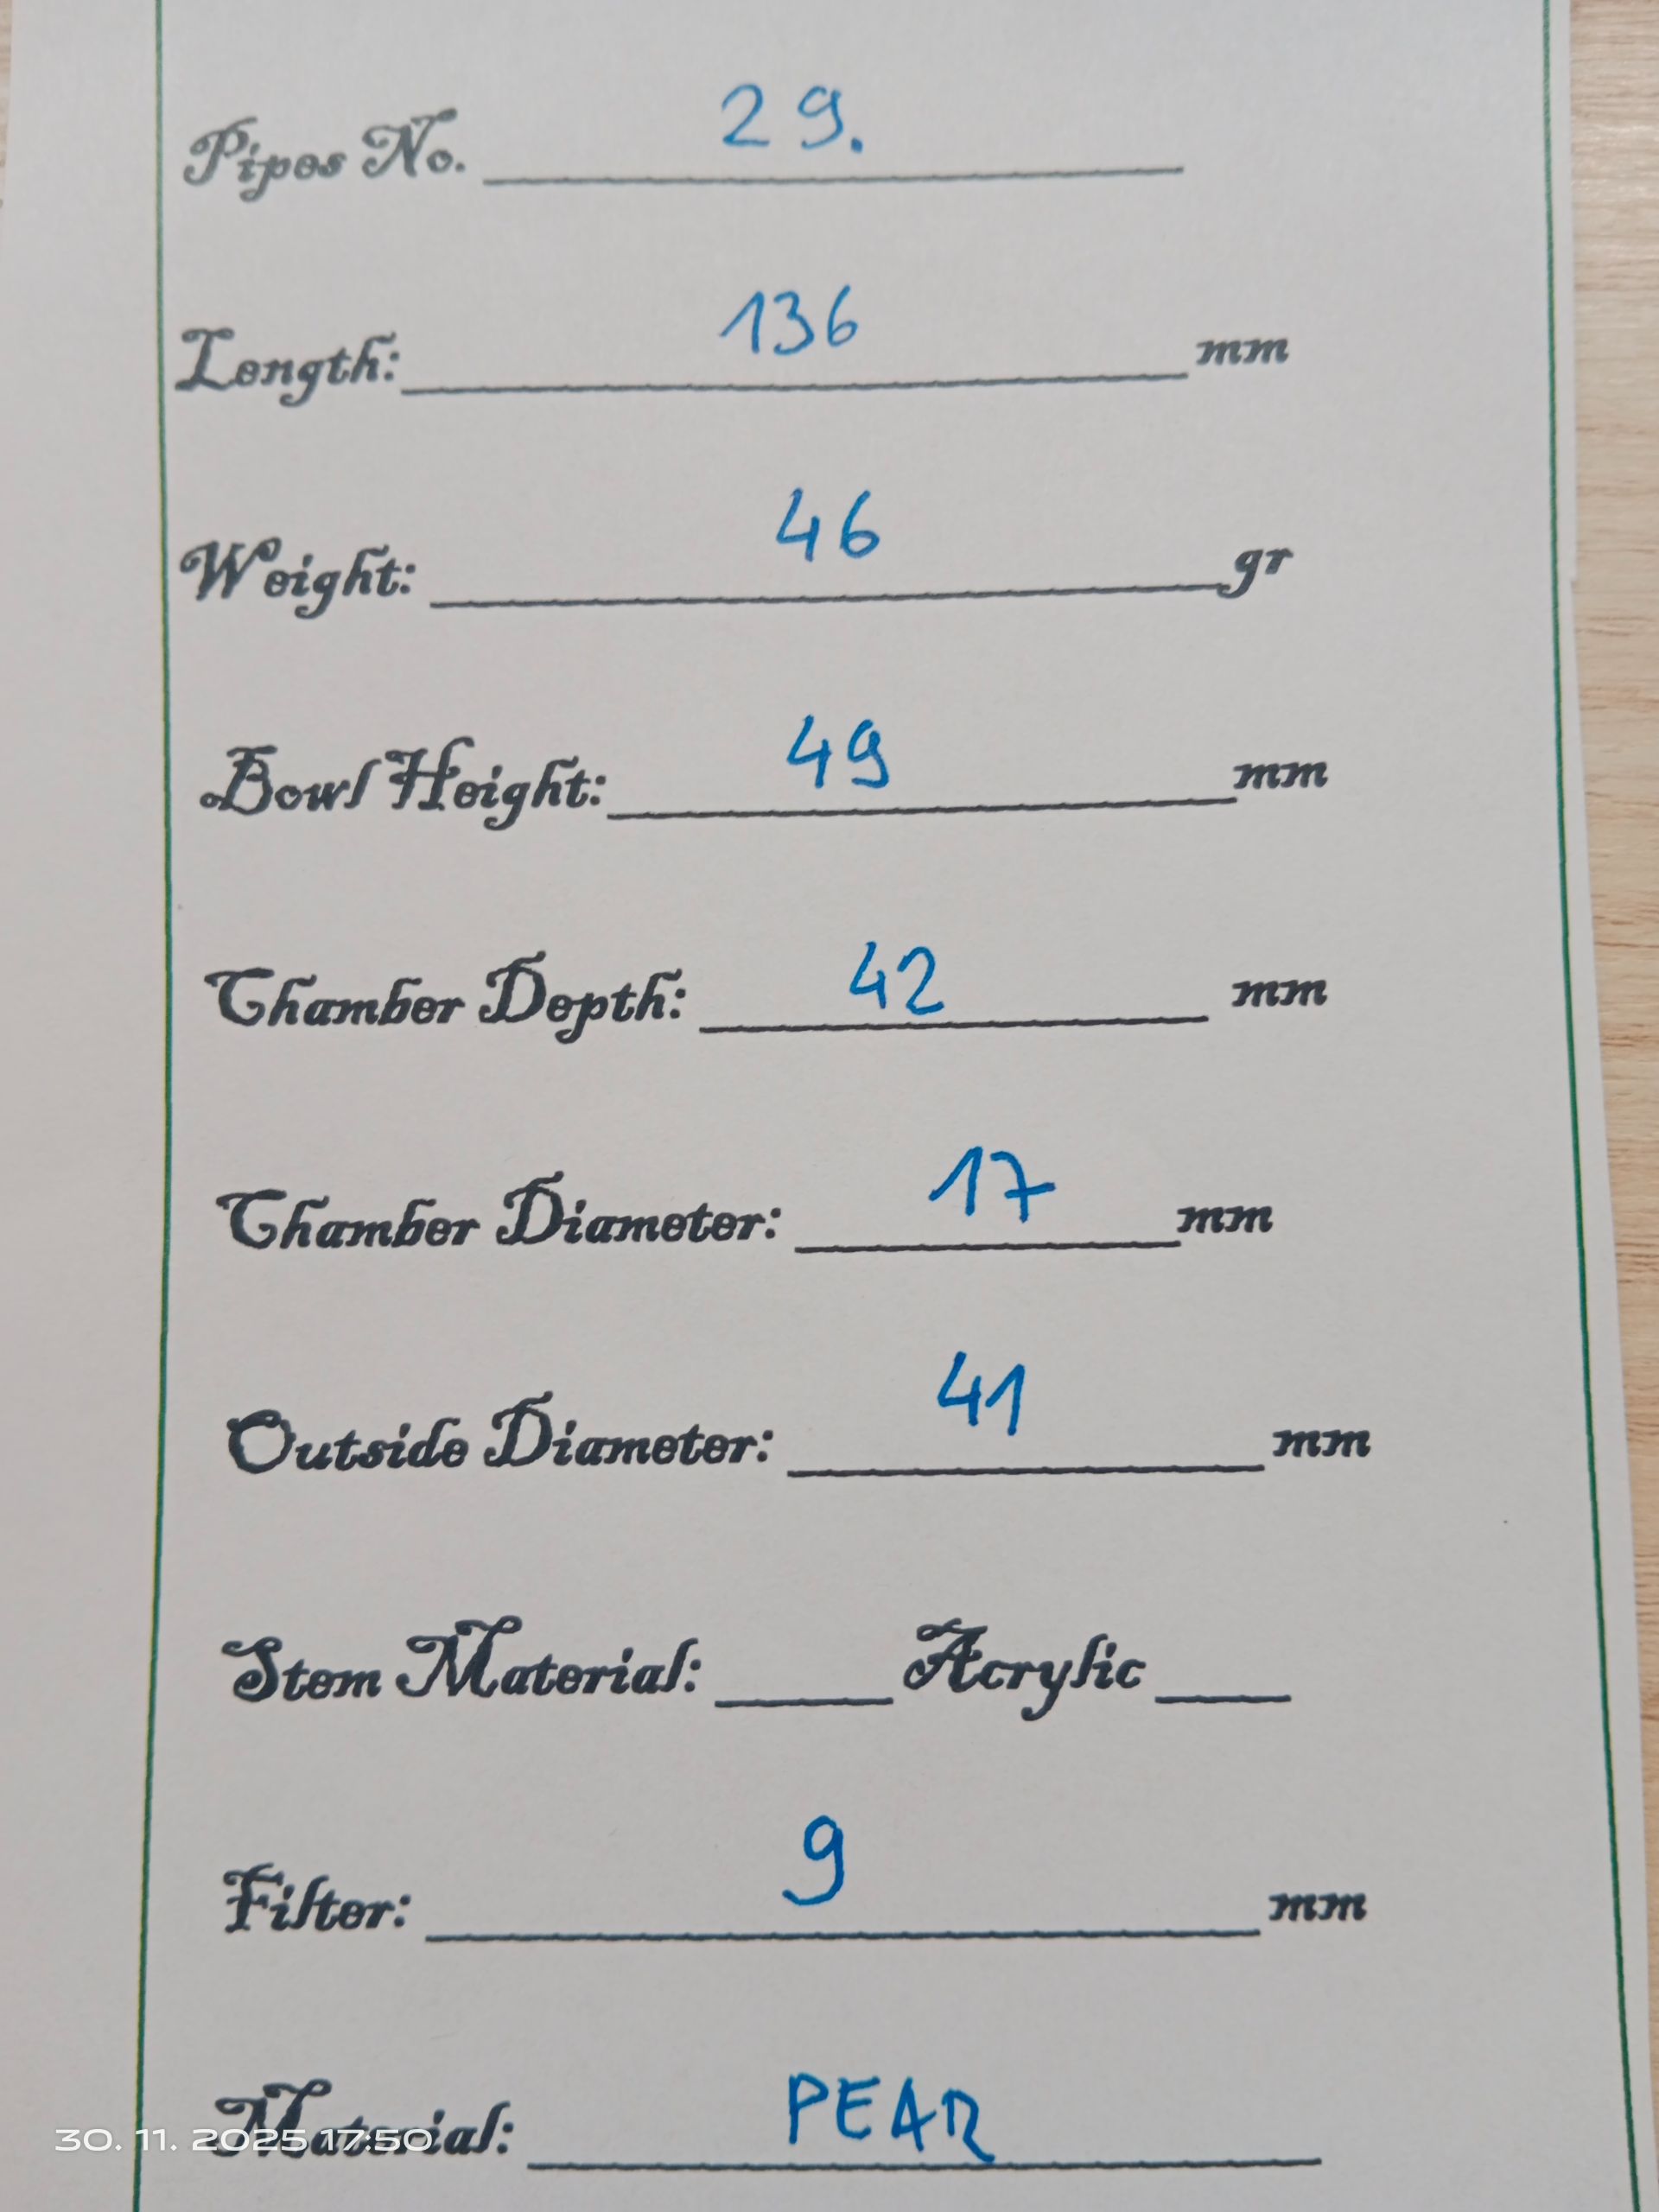 Pipes No. 29.
Length: 136 mm
Weight: 46 gr
Bowl Height: 49 mm
Chamber Depth: 42 mm
Chamber Diameter: 17 mm
Outside Diameter: 41 mm
Stem Material: Acrylic
Filter: 9 mm
Material: PEAR
30. 11. 2025 17:50